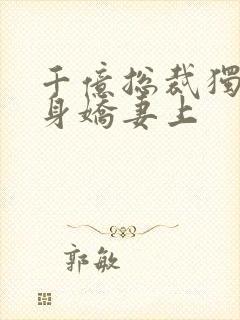 千億總裁獨
身嬌妻上
郭敏